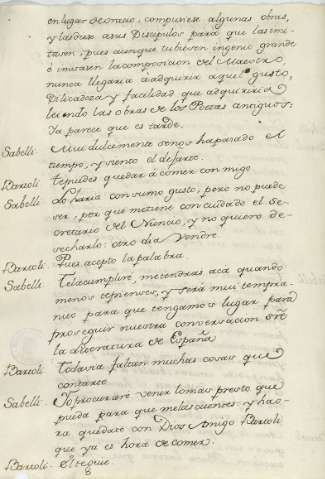 en lugar de orase, compusiese algunas obras,
y las diese a sus Discipulos para que las imi-
tasen; pues aunque tubiesen ingenio grande
é imitasen la composicion del Maestro,
nunca llegaria á adquirir aquel gusto,
Delicadeza y facilidad que adquiriria
leiendo las obras de los Poetas antiguos:
Ya parece que es tarde.
Sabelli. Mui dulcemente senos ha pasado el
tiempo, y siento el dejarte.
Bartoli. te puedes quedar á comer con migo.
Sabelli. Lo haria con sumo gusto, pero no puede
ser, por que me tiene con cuidado el Se-
cretario del Nuncio, y no quiero de-
secharlo: otro dia vendré.
Bartoli. Pues acepto la palabra.
Sabelli. Te la cumpliré, me tendras acá quando
menos lo pienses, y será mui tempra-
no para que tengamos lugar para
proseguir nuestra conversacion sre
la literatura de España
Bartoli. Todavia faltan muchas cosas que
contarte
Sabelli. Yo procuraré venir lo mas presto que
pueda para que me las cuentes: y aho-
ra quedate con Dios Amigo Bartoli
que ya es hora de comer.
Bartoli. El te guie.